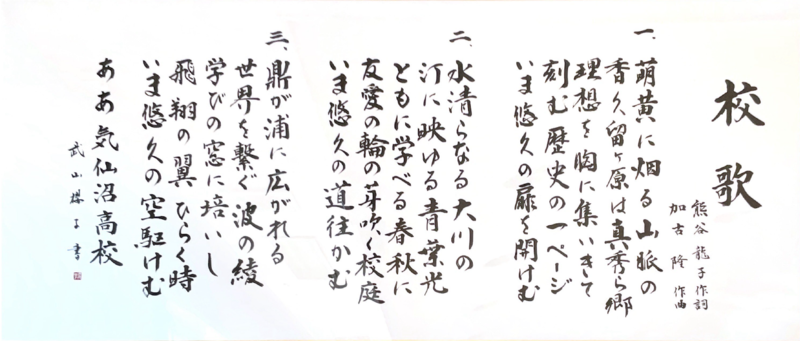 校歌
熊谷 龍子 作詞
加古 隆 作曲
一、萌黄に烟る山脈の
香久留ヶ原は真秀ら郷
理想を胸に集いきて
刻む歴史の一ページ
いま悠久の扉を開けむ
二、水清らなる大川の
汀に映ゆる青葉光
ともに学べる春秋に
友愛の輪の芽吹く校庭
いま悠久の道往かむ
三、鼎が浦に広がれる
世界を繋ぐ波の綾
学びの窓に培いし
飛翔の翼ひらく時
いま悠久の空駆けむ
ああ気仙沼高校
武山 子書